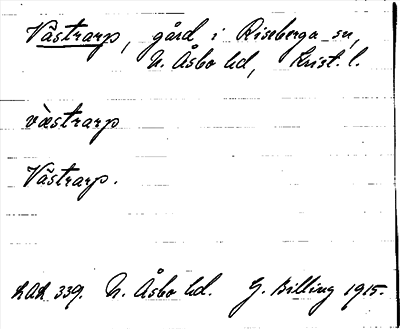 Västrarp, gård i Riseberga sn,
N. Åsbo hd, Krist. l.
vàstrarp
Västrarp.
LAL 339. N. Åsbo hd. G. Billing 1915.